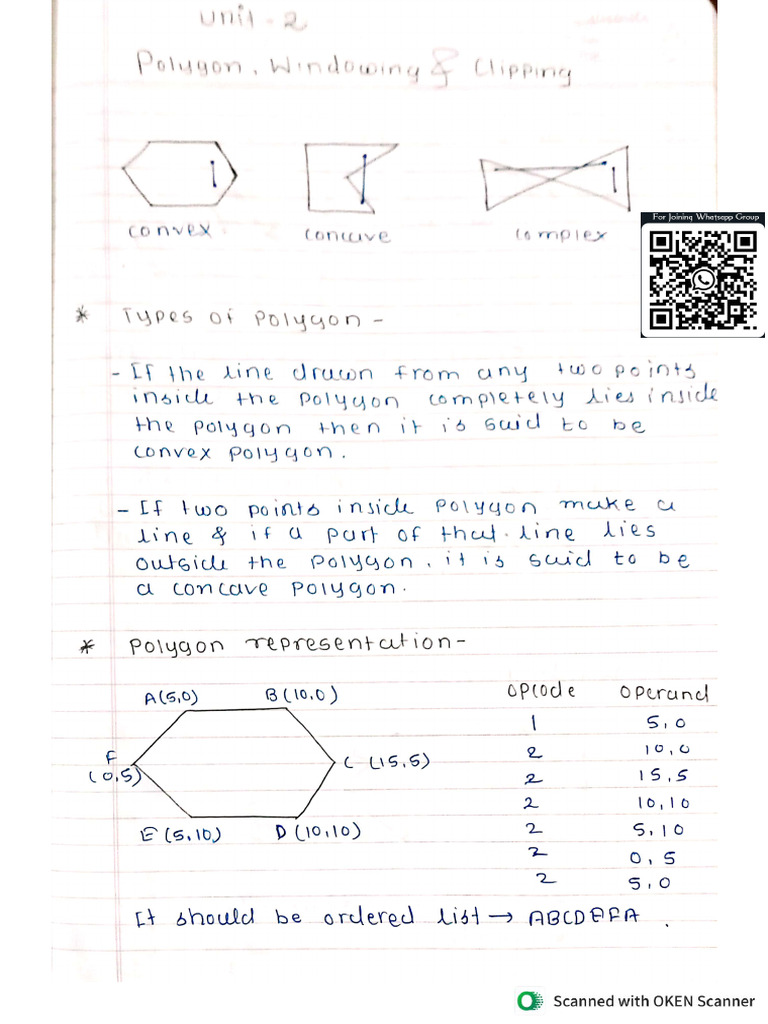 Unit - 2
Polygon, Windowing & Clipping
convex
concave
complex
For Joining Whatsapp Group
* Types of polygon -
- If the line drawn from any two points
inside the polygon completely lies inside
the polygon then it is said to be
convex polygon.
- If two points inside polygon make a
line & if a part of that line lies
outside the polygon, it is said to be
a concave polygon.
* Polygon representation -
A(5,0) B(10,0)
F
(0,5)
C (15,5)
E (5,10) D (10,10)
opcode operand
1 5,0
2 10,0
2 15,5
2 10,10
2 5,10
2 0,5
2 5,0
It should be ordered list → ABCDEFA.
Scanned with OKEN Scanner